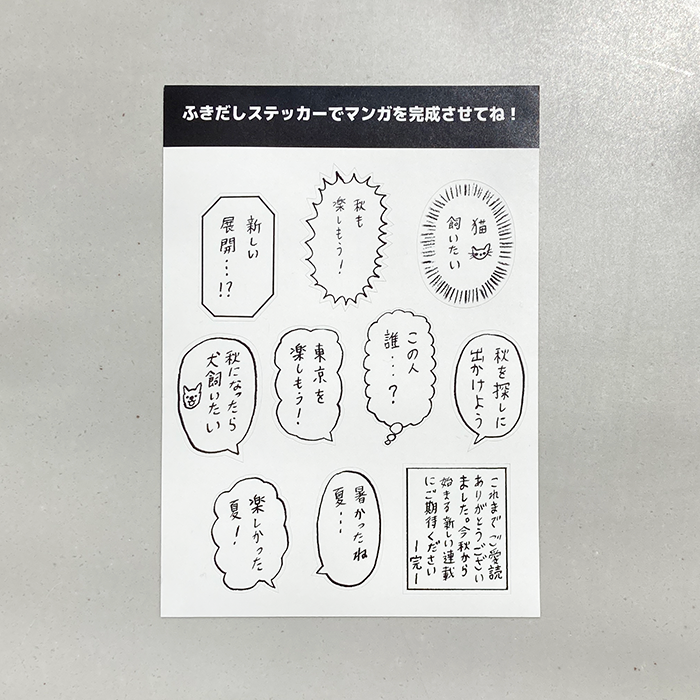 ふきだしステッカーでマンガを完成させてね！
新しい
展開…!?
秋も
楽しもう！
猫
飼いたい
秋になったら
犬飼いたい
東京を
楽しもう！
この人
誰…？
秋を探しに
出かけよう
楽しかった
夏！
暑かったね
夏…
これまでご愛読
ありがとうござい
ました。今秋から
始まる新しい連載
にご期待ください
ー完ー